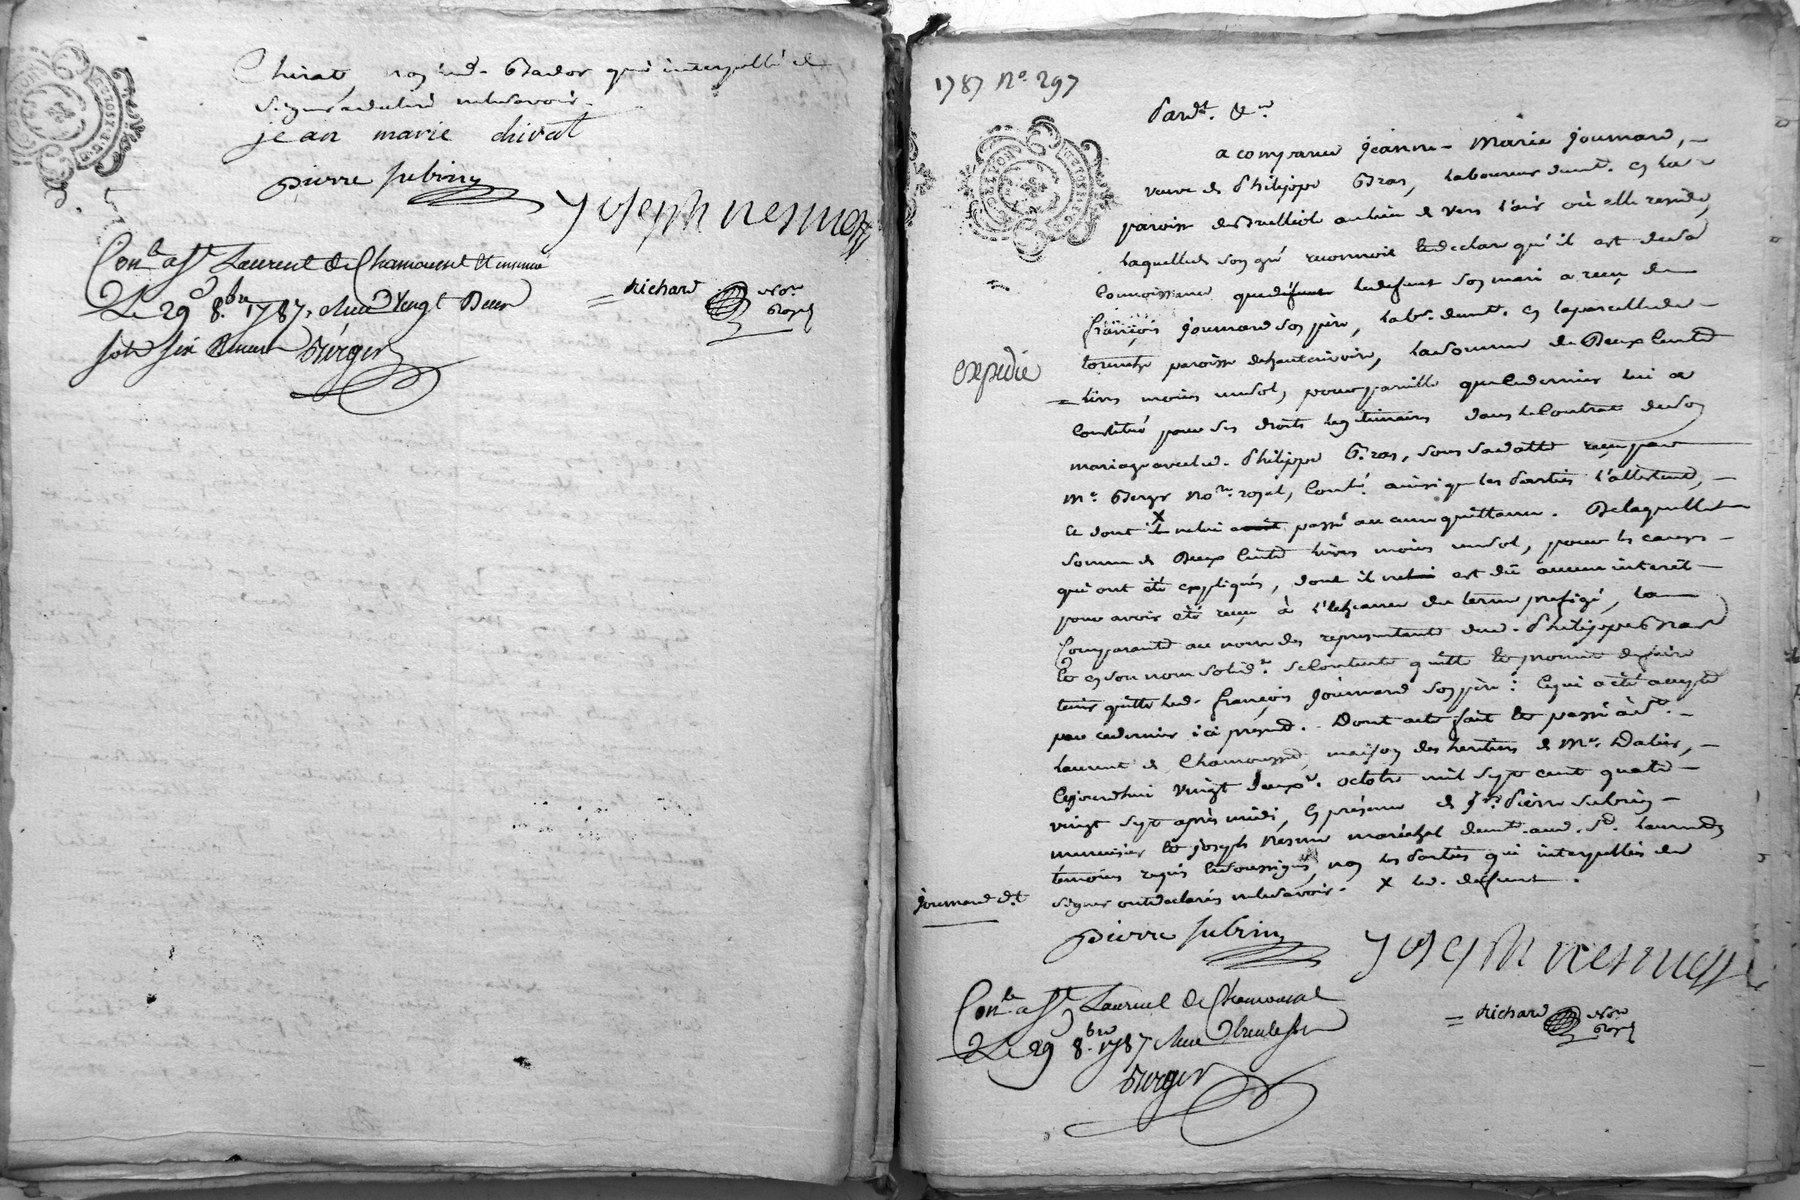 Chirat, non led. Bador qui interpellé de
signer a declaré ne le savoir.
jean marie chirat
pierre subrin
Joseph nesme
Richard Nore Royal
Conlé a St Laurent de Chamousset
Le 29 8bre 1787. Reçu Vingt Deux
sols six deniers Berger
1787 No. 297
Pardt. &a
a comparu Jeanne-Marie Joumard,
veuve de Philippe Gras, laboureur demt. en la
paroisse de Brulliole au lieu de vers l'air où elle reside,
laquelle de son gré reconnoit et declare qu'il est de sa
connoissance que defunt ledefunt son mari a reçu de
françois Joumard son père, labr. demt. en la parcelle de
paroisse de hauterivoire, la somme de Deux Cents
expedié
livres moins un sol, pour pareille que ce dernier lui a
constitué pour ses droits legitimaires dans le Contrat de son
mariage avec led. Philippe Gras, sous sa datte reçu par
Me. Berger Nore. royal, Conlé. ainsi que les parties l'attestent,
et dont x il ne lui avoit passé aucune quittance. De laquelle
somme de Deux Cents livres moins un sol, pour les causes
qui ont été expliquées, dont il ne lui est dû aucun interêt
pour avoir été reçue à l'echeance du terme prefigé, la
Comparante au nom des representants dud. Philippe Gras
et en son nom solidre. se contente quitte et promet de faire
tenir quitte led. françois Joumard son père: ce qui a été accepté
par ce dernier ici présent. Dont acte fait et passé à St.
Laurent de Chamousset, maison des heritiers de Mr. Dalier,
cejourdhui vingt deuxe. octobre mil sept cent quatre
vingt sept après midi, en présence de Sr. Pierre Subrin
menuisier et Joseph Nesme maréchal demts. aud. St. Laurent
témoins requis et soussignés, non les parties qui interpellées de
Joumard dt.
signer ont declaré ne le savoir. x led. defunt.
pierre subrin
Joseph nesme
Richard Nore Royal
Conlé a St Laurent de Chamousset
Le 29 8bre 1787 Reçu
Berger